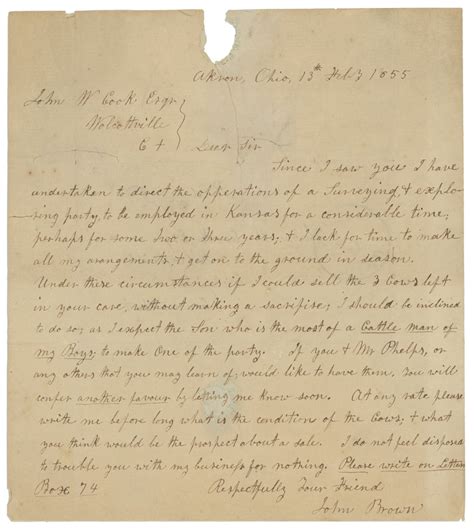 Akron, Ohio, 13th Feby 1855
John W Cook Esqr
Wolcottville
Ct Dear Sir
Since I saw you I have
undertaken to direct the opperations of a Surveying, & explo-
ring party, to be employed in Kansas for a considerable time,
perhaps for some Two, or three years; & I lack for time to make
all my arangements, & get on to the ground in season.
Under these circumstances if I could sell the 3 Cows left
in your care, without making a sacrifise; I should be inclined
to do so; as I expect the Son who is the most of a Cattle man of
my Boys; to make One of the party. If you & Mr Phelps, or
any others that you may learn of; would like to have them, You will
confer another favour by letting me know soon. At any rate please
write me before long what is the condition of the Cows; & what
you think would be the prospect about a sale. I do not feel disposed
to trouble you with my business for nothing. Please write on Letter
Box 74 Respectfully Your Friend
John Brown